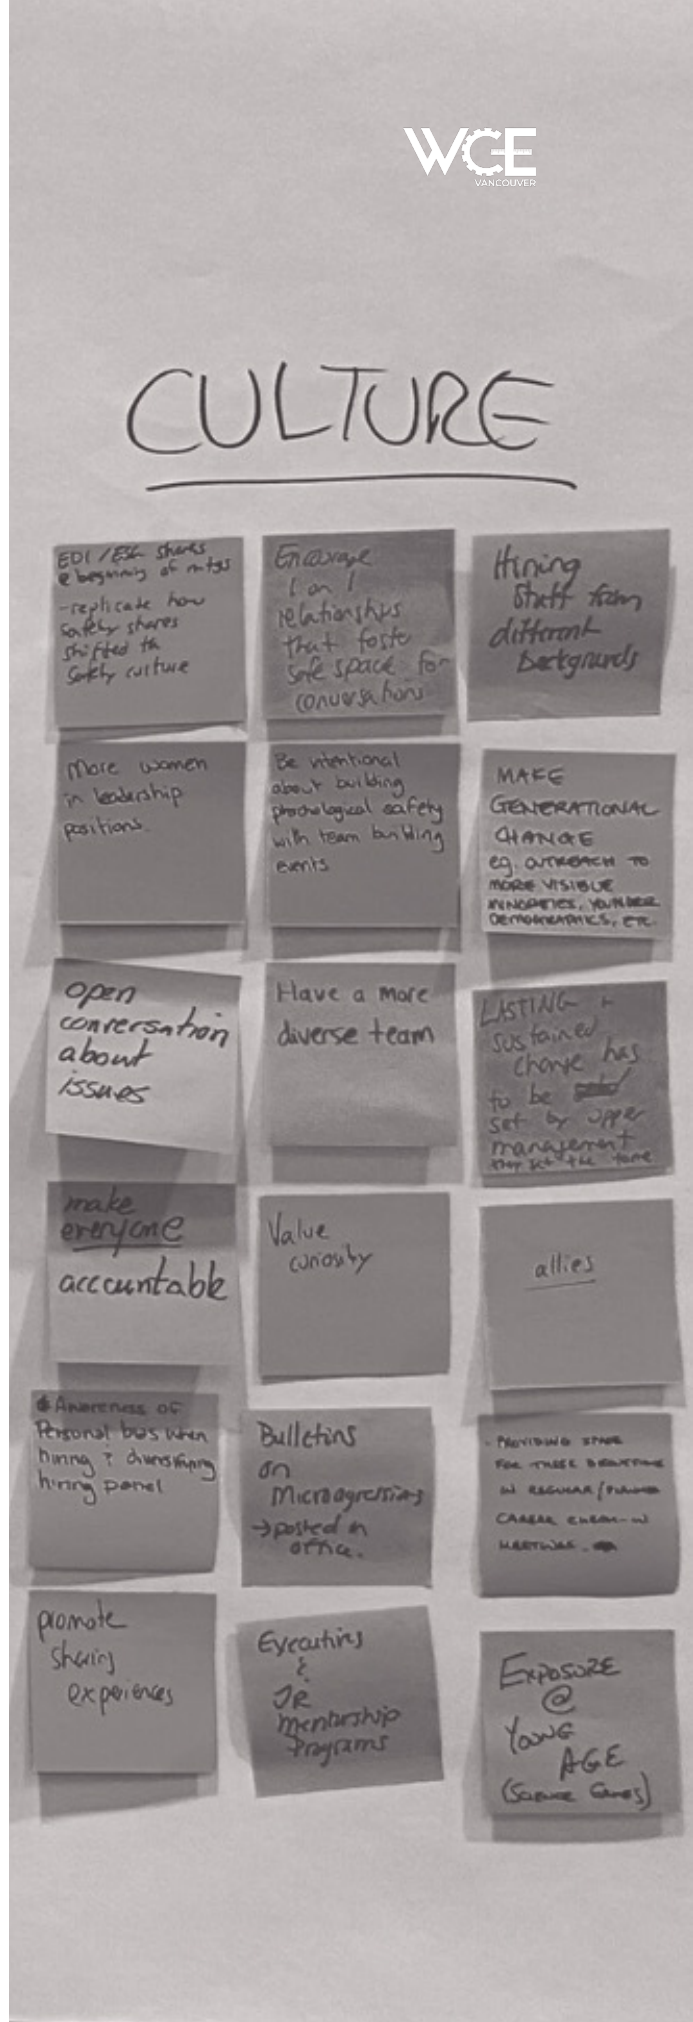 WCE
VANCOUVER
CULTURE
EDI / ESG shares
@ beginning of mtgs
-replicate how
safety shares
shifted th
safety culture
Encourage
1 on 1
relationships
that foste
safe space for
conversations
Hiring
Staff from
different
backgrounds
More women
in leadership
positions.
Be intentional
about building
phochological safety
with team building
events
MAKE
GENERATIONAL
CHANGE
eg. OUTREACH TO
MORE VISIBLE
MINORITIES, YOUNGER
DEMOGRAPHICS, ETC.
open
conversation
about
issues
Have a more
diverse team
LASTING +
sustained
change has
to be
set by upper
management
they set the tone
make
everyone
accountable
Value
curiosity
allies
Awareness of
Personal bias when
hiring & diversifying
hiring panel
Bulletins
on
Microagressions
→ posted in
office.
- PROVIDING SPACE
FOR THESE
IN REGULAR/PLANNED
CAREER CHECK-IN
MEETINGS.
promote
sharing
experiences
Executives
&
JR
mentorship
Programs
EXPOSURE
@
YOUNG
AGE
(Science Games)